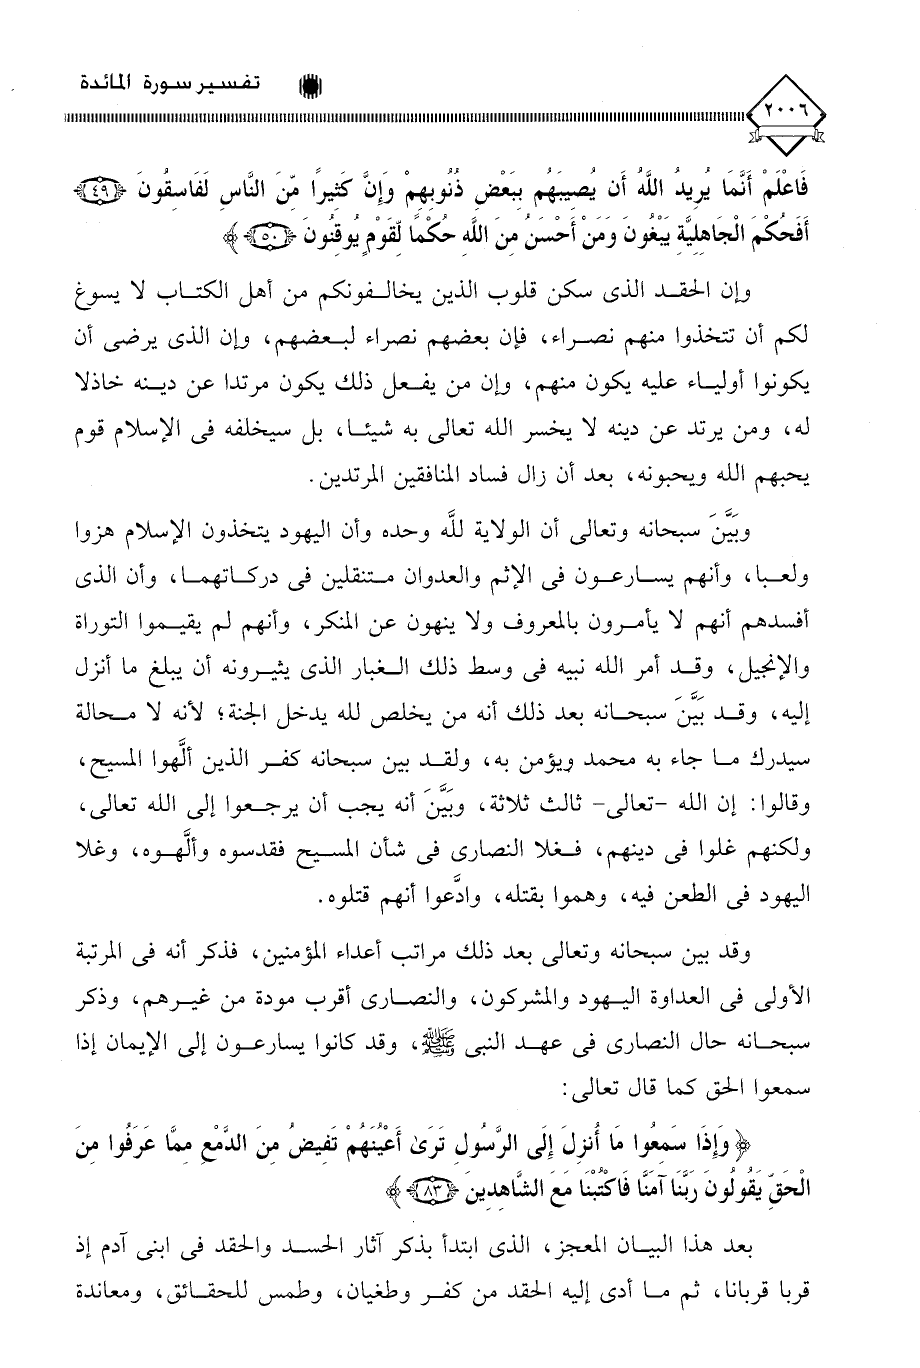 تفسير سورة المائدة
٢٠٠٦
فَاعْلَمْ أَنَّمَا يُرِيدُ اللَّهُ أَن يُصِيبَهُم بِبَعْضِ ذُنُوبِهِمْ وَإِنَّ كَثِيرًا مِّنَ النَّاسِ لَفَاسِقُونَ ﴿٤٩﴾
أَفَحُكْمَ الْجَاهِلِيَّةِ يَبْغُونَ وَمَنْ أَحْسَنُ مِنَ اللَّهِ حُكْمًا لِّقَوْمٍ يُوقِنُونَ ﴿٥٠﴾ ﴾
وإن الحقد الذى سكن قلوب الذين يخالفونكم من أهل الكتاب لا يسوغ
لكم أن تتخذوا منهم نصراء، فإن بعضهم نصراء لبعضهم، وإن الذى يرضى أن
يكونوا أولياء عليه يكون منهم، وإن من يفعل ذلك يكون مرتدا عن دينه خاذلا
له، ومن يرتد عن دينه لا يخسر الله تعالى به شيئا، بل سيخلفه فى الإسلام قوم
يحبهم الله ويحبونه، بعد أن زال فساد المنافقين المرتدين.
وبَيَّنَ سبحانه وتعالى أن الولاية للَّه وحده وأن اليهود يتخذون الإسلام هزوا
ولعبا، وأنهم يسارعون فى الإثم والعدوان متنقلين فى دركاتهما، وأن الذى
أفسدهم أنهم لا يأمرون بالمعروف ولا ينهون عن المنكر، وأنهم لم يقيموا التوراة
والإنجيل، وقد أمر الله نبيه فى وسط ذلك الغبار الذى يثيرونه أن يبلغ ما أنزل
إليه، وقد بَيَّنَ سبحانه بعد ذلك أنه من يخلص لله يدخل الجنة؛ لأنه لا محالة
سيدرك ما جاء به محمد ويؤمن به، ولقد بين سبحانه كفر الذين ألَّهوا المسيح،
وقالوا: إن الله -تعالى- ثالث ثلاثة، وبَيَّنَ أنه يجب أن يرجعوا إلى الله تعالى،
ولكنهم غلوا فى دينهم، فغلا النصارى فى شأن المسيح فقدسوه وألَّهوه، وغلا
اليهود فى الطعن فيه، وهموا بقتله، وادَّعوا أنهم قتلوه.
وقد بين سبحانه وتعالى بعد ذلك مراتب أعداء المؤمنين، فذكر أنه فى المرتبة
الأولى فى العداوة اليهود والمشركون، والنصارى أقرب مودة من غيرهم، وذكر
سبحانه حال النصارى فى عهد النبى ﷺ، وقد كانوا يسارعون إلى الإيمان إذا
سمعوا الحق كما قال تعالى:
﴿ وَإِذَا سَمِعُوا مَا أُنزِلَ إِلَى الرَّسُولِ تَرَىٰ أَعْيُنَهُمْ تَفِيضُ مِنَ الدَّمْعِ مِمَّا عَرَفُوا مِنَ
الْحَقِّ يَقُولُونَ رَبَّنَا آمَنَّا فَاكْتُبْنَا مَعَ الشَّاهِدِينَ ﴿٨٣﴾ ﴾
بعد هذا البيان المعجز، الذى ابتدأ بذكر آثار الحسد والحقد فى ابنى آدم إذ
قربا قربانا، ثم ما أدى إليه الحقد من كفر وطغيان، وطمس للحقائق، ومعاندة